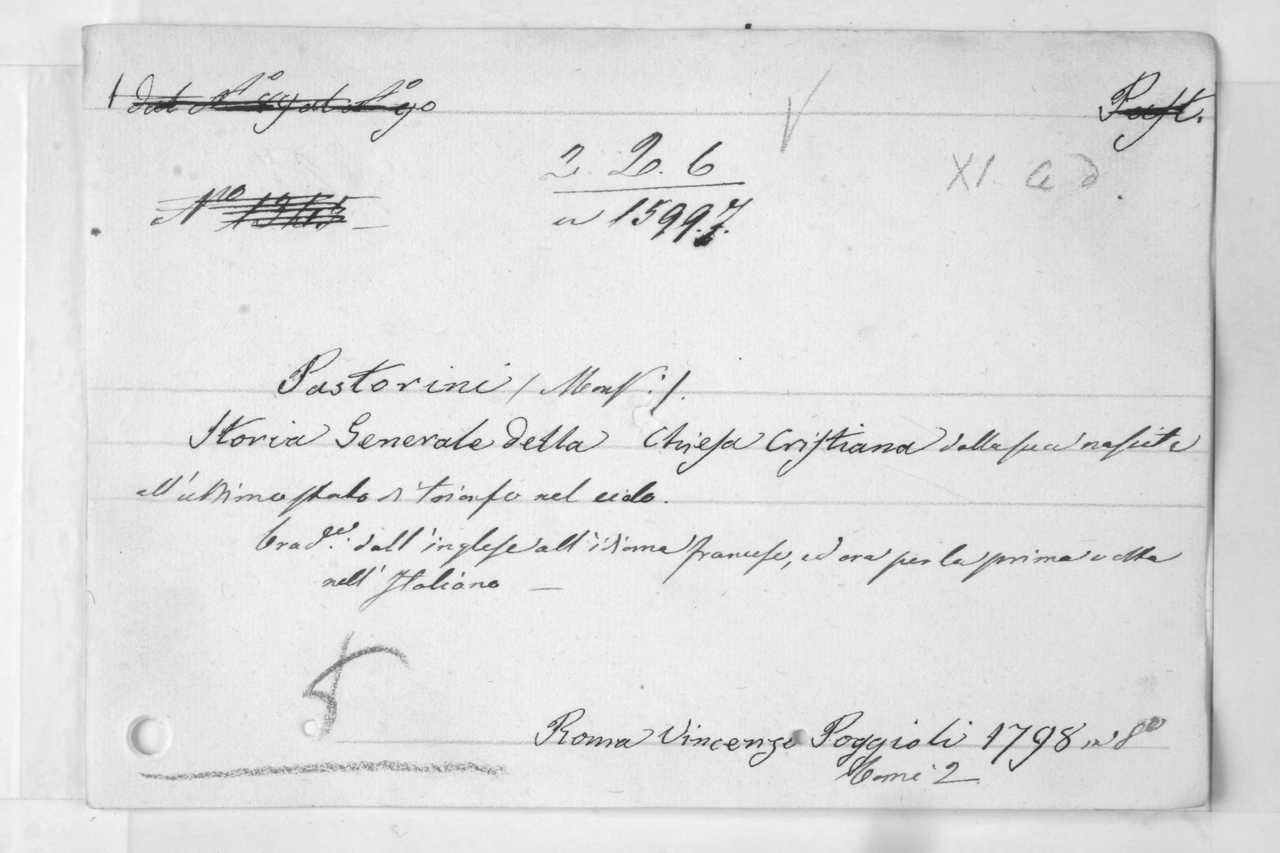 Past.
2. 2. 6
XI. a d.
Nro
a 15997.
Pastorini (Monsr:).
Storia Generale della Chiesa Cristiana dalla sua nascita
all'ultimo stato di trionfo nel cielo.
trade: dall'inglese all'idioma francese, ed ora per la prima volta
nell'Italiano —
Roma Vincenzo Poggioli 1798 in 8vo
Tomi 2